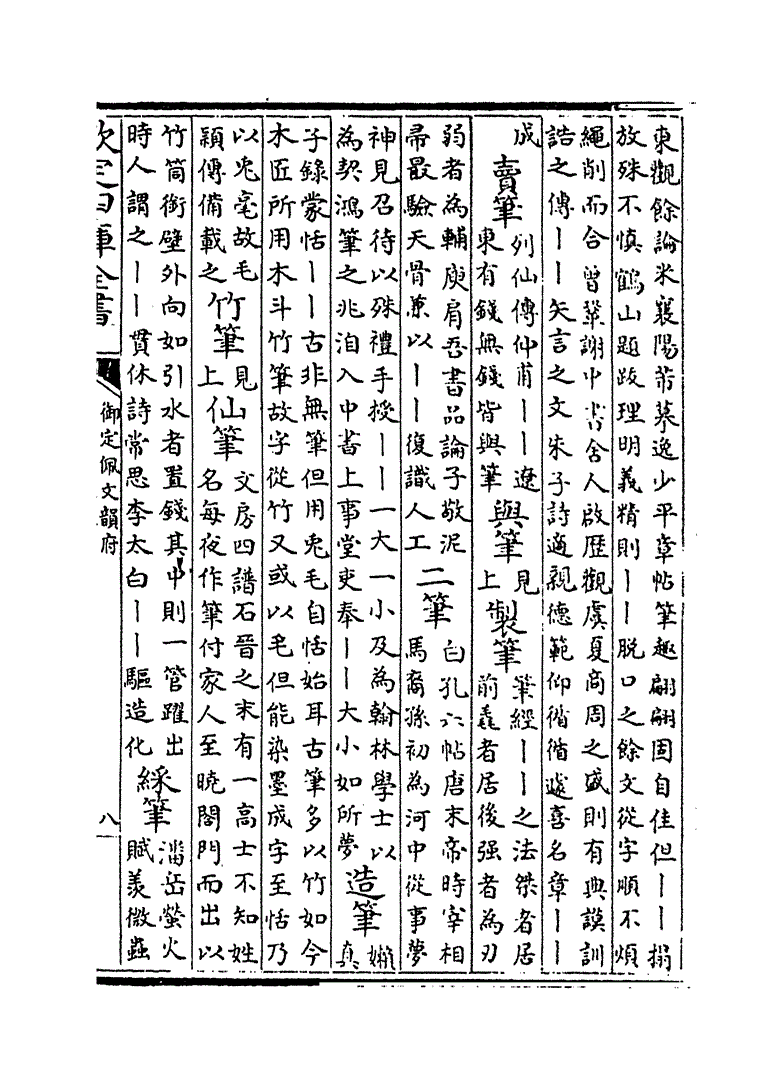 東觀餘論米襄陽芾摹逸少平章帖筆趣翩翩固自佳但丨丨搨
放殊不慎鶴山題跋理明義精則丨丨脱口之餘文從字順不煩
繩削而合曾鞏謝中書舍人啟歴觀虞夏商周之盛則有典謨訓
誥之傳丨丨矢言之文朱子詩適親德範仰循循遽喜名章丨丨
成
賣筆
列仙傳仲甫丨丨遼
東有錢無錢皆與筆
與筆
見
上
製筆
筆經丨丨之法桀者居
前毳者居後强者為刃
弱者為輔庾肩吾書品論子敬泥
帚最驗天骨兼以丨丨復識人工
二筆
白孔六帖唐末帝時宰相
馬裔孫初為河中從事夢
神見召待以殊禮手授丨丨一大一小及為翰林學士以
為契鴻筆之兆洎入中書上事堂吏奉丨丨大小如所夢
造筆
嬾
真
子錄蒙恬丨丨古非無筆但用兎毛自恬始耳古筆多以竹如今
木匠所用木斗竹筆故字從竹又或以毛但能染墨成字至恬乃
以兎毫故毛
穎傳備載之
竹筆
見
上
仙筆
文房四譜石晉之末有一高士不知姓
名每夜作筆付家人至曉閤門而出以
竹筒銜壁外向如引水者置錢其中則一管躍出
時人謂之丨丨貫休詩常思李太白丨丨驅造化
綵筆
潘岳螢火
賦羨微蟲
欽定四庫全書
御定佩文韻府
八